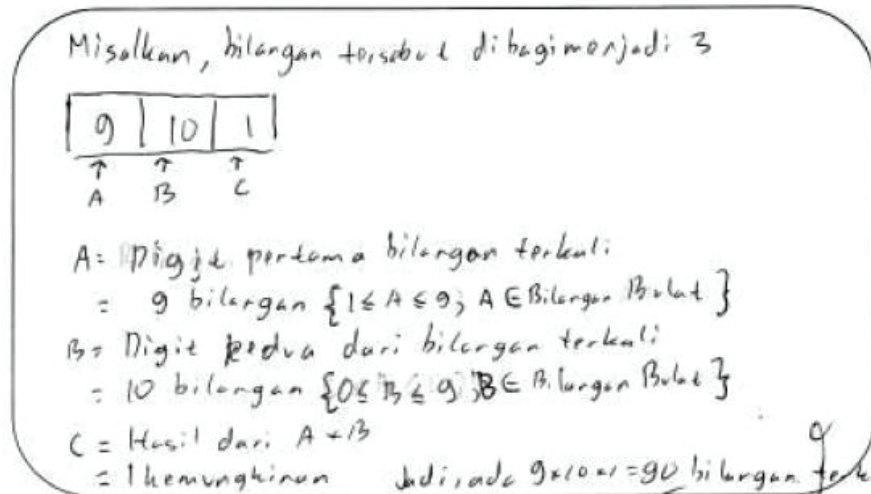 Misalkan, bilangan tersebut dibagi menjadi 3
9 10 1
A B C
A = Digit pertama bilangan terkali
= 9 bilangan {1 ≤ A ≤ 9; A ∈ Bilangan Bulat}
B = Digit kedua dari bilangan terkali
= 10 bilangan {0 ≤ B ≤ 9; B ∈ Bilangan Bulat}
C = Hasil dari A + B
= 1 kemungkinan Jadi, ada 9×10×1=90 bilangan